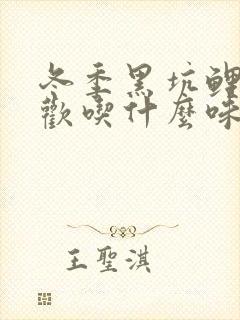 冬季黑坑鲤
歡喫什麼味
王聖淇